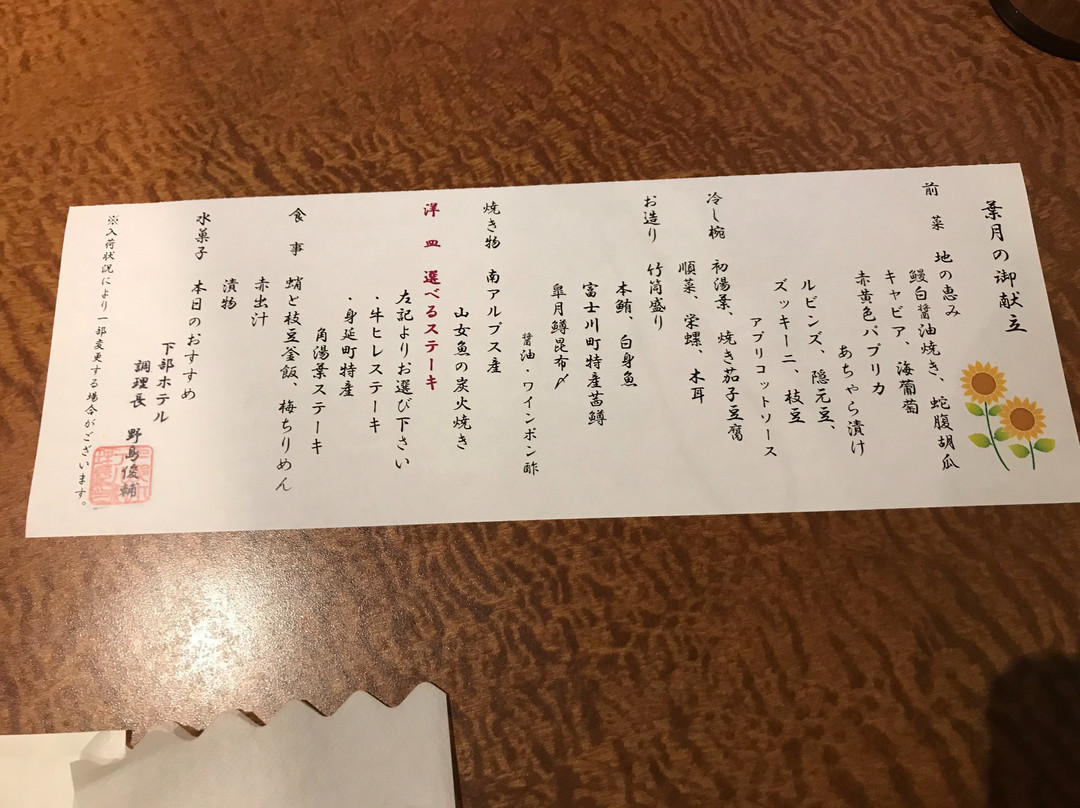 葉月の御献立
前菜 地の恵み
鰻白醤油焼き、蛇腹胡瓜
キャビア、海葡萄
赤黄色パプリカ
あちゃら漬け
ルビンズ、隠元豆、
ズッキーニ、枝豆
アプリコットソース
冷し椀 初湯葉、焼き茄子豆腐
順菜、栄螺、木耳
お造り 竹筒盛り
本鮪、白身魚
富士川町特産茜鱒
皐月鱒昆布〆
醤油・ワインポン酢
焼き物 南アルプス産
山女魚の炭火焼き
洋皿 選べるステーキ
左記よりお選び下さい
・牛ヒレステーキ
・身延町特産
角湯葉ステーキ
食事 蛸と枝豆釜飯、梅ちりめん
赤出汁
漬物
水菓子 本日のおすすめ
下部ホテル
調理長 野島俊輔
※入荷状況により一部変更する場合がございます。